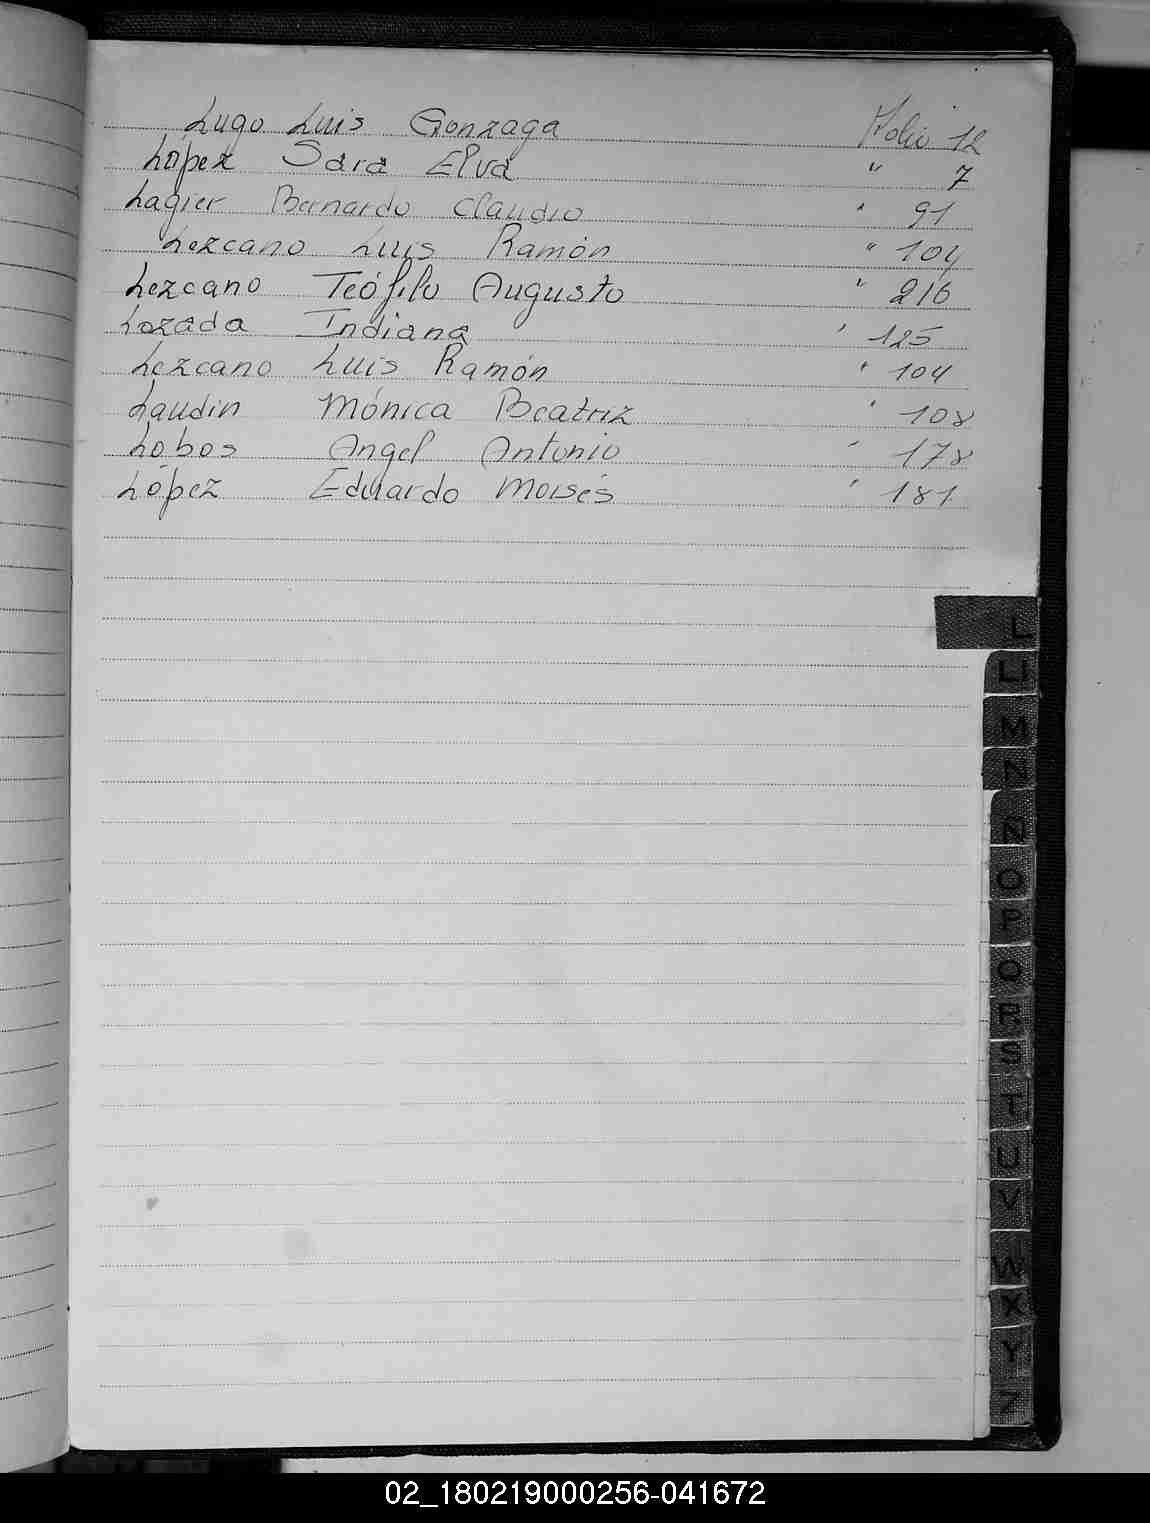 Lugo Luis Gonzaga Folio 12
López Sara Elva " 7
Lagier Bernardo Claudio " 91
Lezcano Luis Ramón " 104
Lezcano Teófilo Augusto " 216
Lozada Indiana " 125
Lezcano Luis Ramón " 104
Laudin Mónica Beatriz " 108
Lobos Angel Antonio " 178
López Eduardo Moisés " 181
L
Ll
M
N
Ñ
O
P
Q
R
S
T
U
V
W
X
Y
Z
02_180219000256-041672